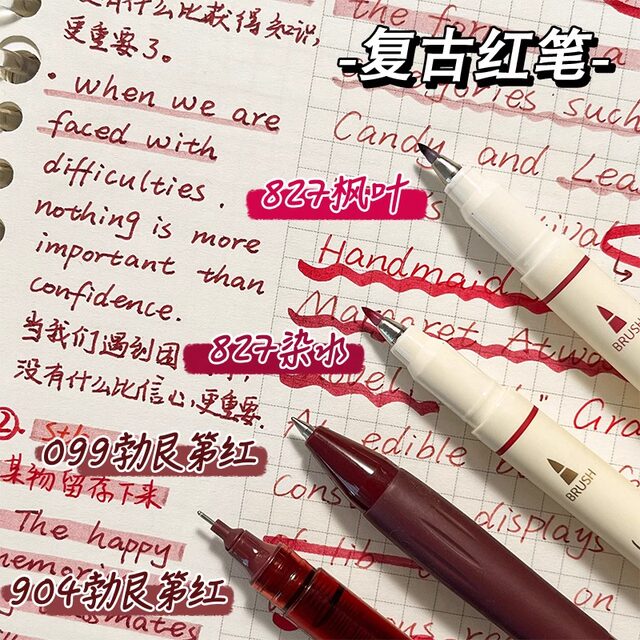 -复古红笔-
没有什么比获得知识,
更重要了。
· when we are
faced with
difficulties.
nothing is more
important than
confidence.
当我们遇到困
没有什么比信心,更重要.
②
某物留存下来
The happy
the for
such
Candy and Lea
Handmaid
Margaret Atwoo
novel
" Gra
An edible
displays
of lib
827枫叶
827染水
099勃艮第红
904勃艮第红
BRUSH
BRUSH